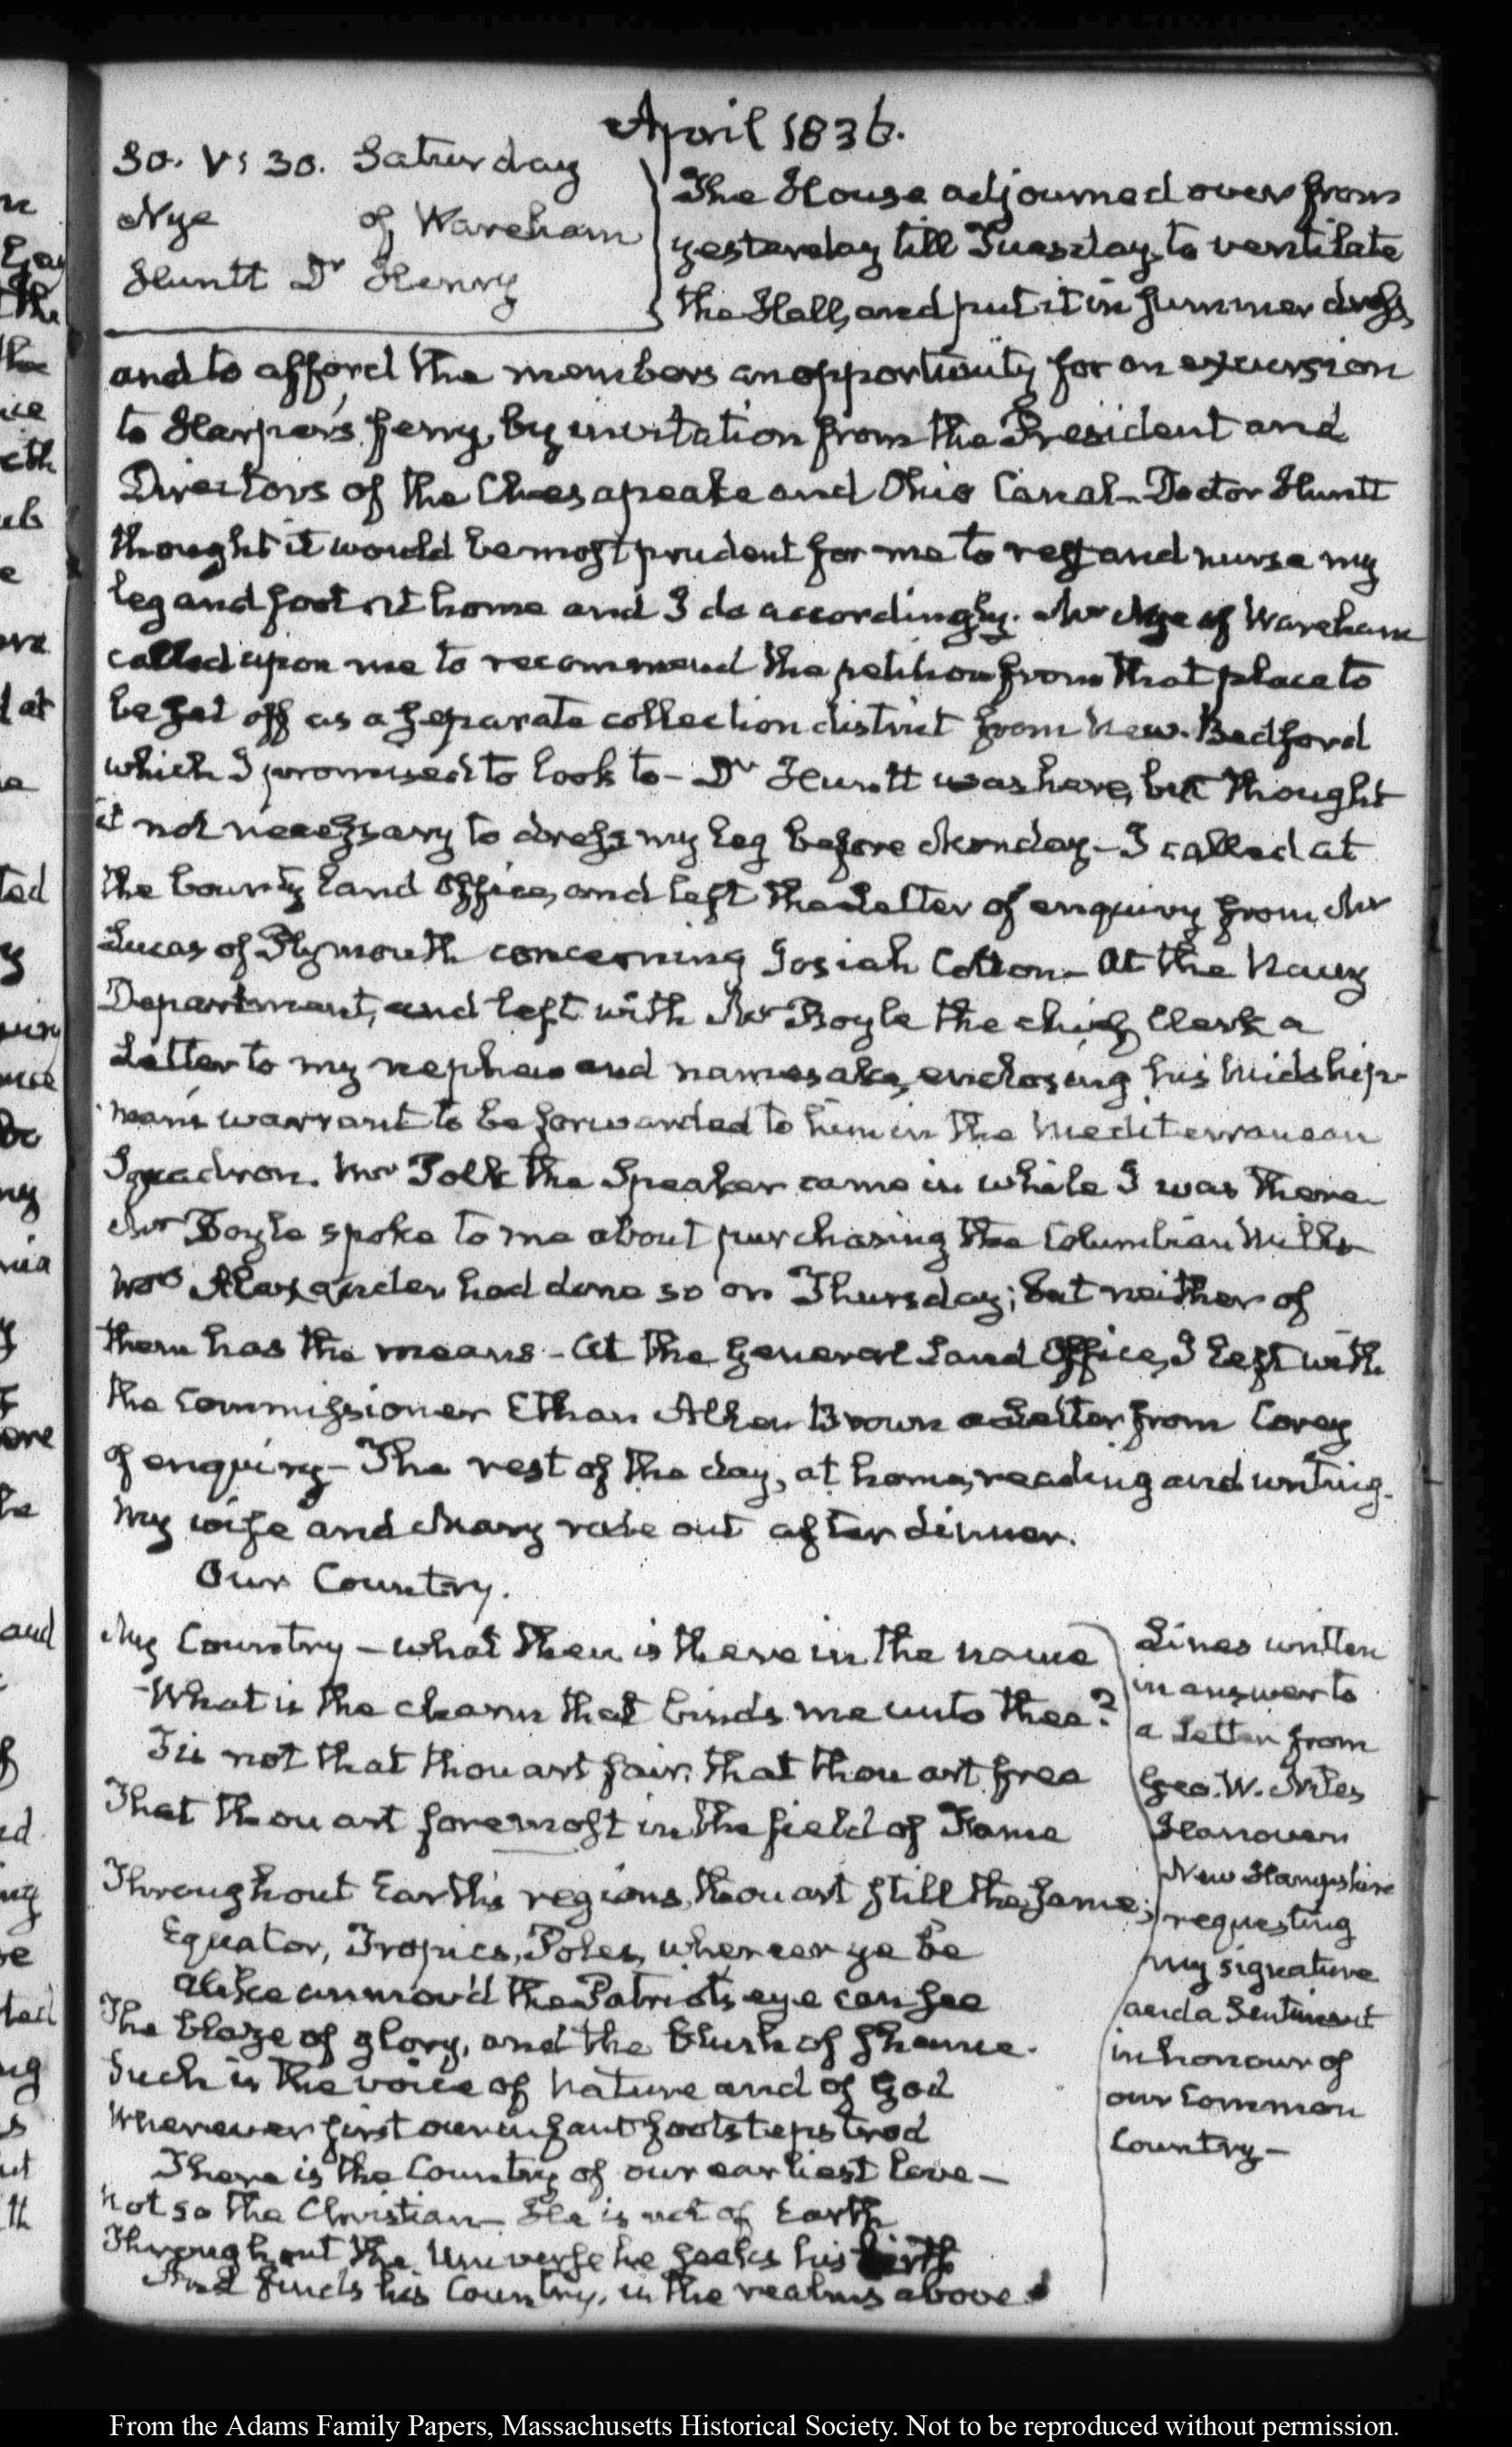 April 1836.
30. V: 30. Saturday
Nye of Wareham
Huntt Dr Henry
The House adjourned over from
yesterday till Tuesday, to ventilate
the Hall, and put it in summer dress,
and to afford the members an opportunity for an excursion
to Harper's ferry, by invitation from the President and
Directors of the Chesapeake and Ohio Canal- Doctor Huntt
thought it would be most prudent for me to rest and nurse my
leg and foot at home and I do accordingly. Mr Nye of Wareham
called upon me to recommend the petition from that place to
be set off as a separate collection district from New-Bedford
which I promised to look to- Dr Huntt was here, but thought
it not necessary to dress my leg before Monday- I called at
the bounty land Office, and left the Letter of enquiry from Mr
Lucas of Plymouth concerning Josiah Cotton- At the Navy
Department, and left with Mr Boyle the chief Clerk a
Letter to my nephew and namesake, enclosing his Midship-
man's warrant to be forwarded to him in the Mediterranean
Squadron. Mr Polk the Speaker came in while I was there
Mr Boyle spoke to me about purchasing the Columbian Mills
Mr Alexander had done so on Thursday; but neither of
them has the means- At the General Land Office, I left with
the Commissioner Ethan Allen Brown a Letter from Corey
of enquiry- The rest of the day, at home, reading and writing.
My wife and Mary rode out after dinner.
Our Country.
My Country - what then is there in the name
What is the charm that binds me unto thee?
Tis not that thou art fair, that thou art free
That thou art foremost in the field of Fame
Throughout Earth's regions, thou art still the same;
Equator, Tropics, Poles, where'er ye be
Alike unmov'd the Patriot's eye can see
The blaze of glory, and the blush of shame.
Such is the voice of Nature and of God
Wherever first our infant footsteps trod
There is the Country of our earliest love-
Not so the Christian- He is not of Earth
Throughout the Universe he seeks his birth
And finds his Country, in the realms above.
Lines written
in answer to
a Letter from
Geo. W. Niles
Hanover
New Hampshire
requesting
my signature
and a Sentiment
in honour of
our Common
Country-
and
From the Adams Family Papers, Massachusetts Historical Society. Not to be reproduced without permission.